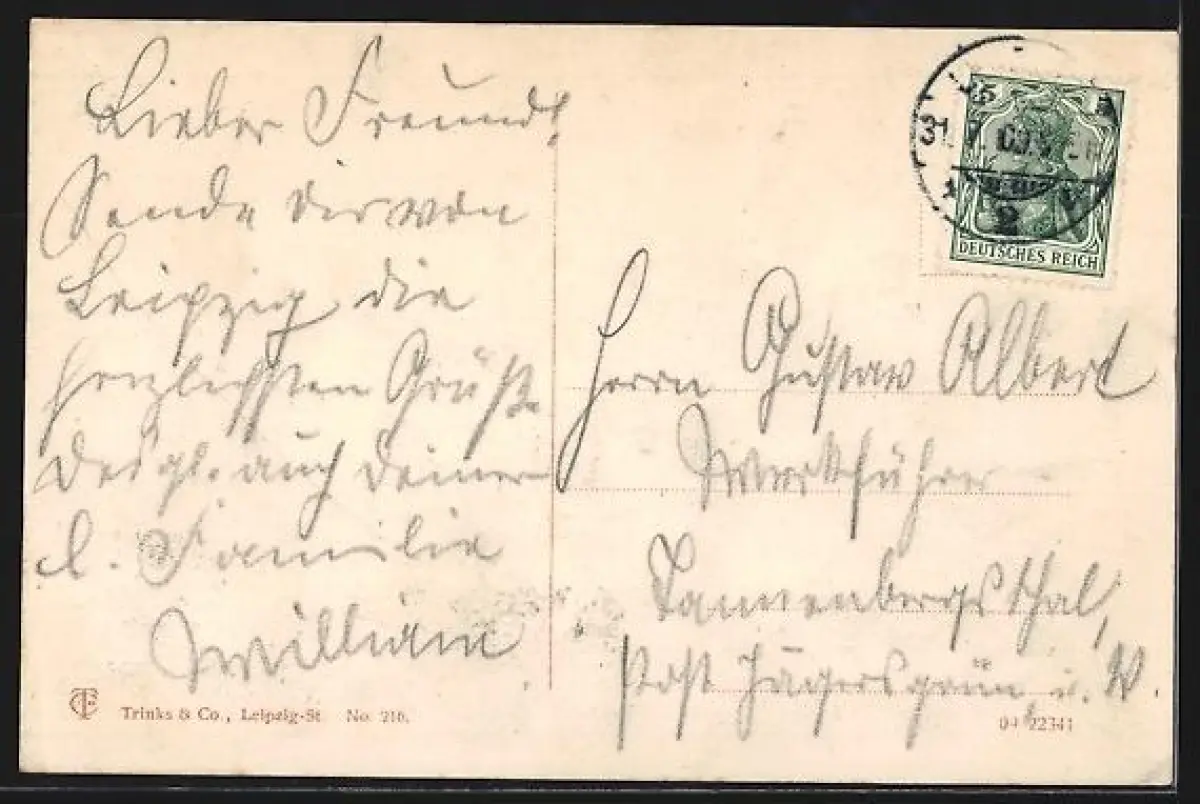 Lieber Freund!
Sende dir von
Leipzig die
herzlichsten Grüße
desgl. auch deiner
l. Familie
William
Trinks & Co., Leipzig-St. No. 210.
5
31.7.09.
2
DEUTSCHES REICH
Herrn Gustav Albert
Werkführer
Tannenbergsthal,
Post Jägersgrün i. V.
04 22341